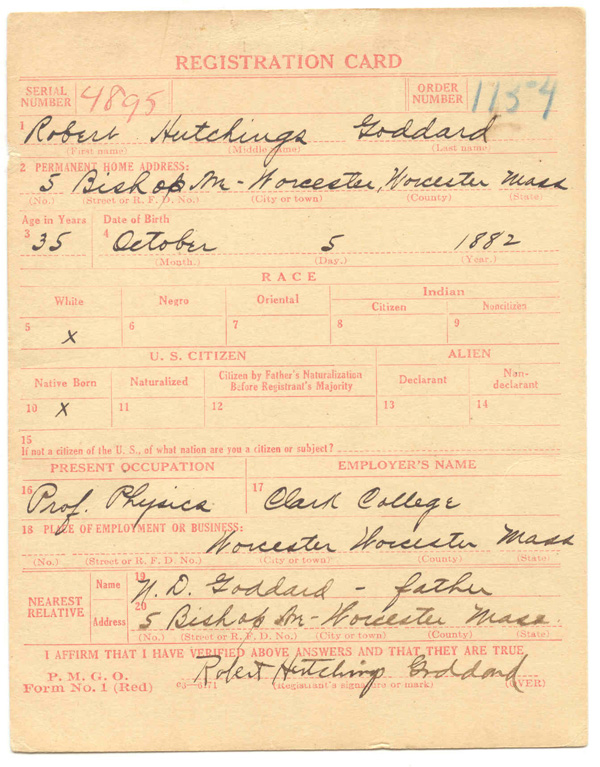 REGISTRATION CARD
SERIAL NUMBER 4895 ORDER NUMBER 1154
1 Robert Hutchings Goddard
(First name) (Middle name) (Last name)
2 PERMANENT HOME ADDRESS:
5 Bishop Ave - Worcester, Worcester Mass
(No.) (Street or R. F. D. No.) (City or town) (County) (State)
Age in Years Date of Birth
3 35 4 October 5 1882
(Month.) (Day.) (Year.)
RACE
White Negro Oriental Indian
Citizen Noncitizen
5 X 6 7 8 9
U. S. CITIZEN ALIEN
Native Born Naturalized Citizen by Father's Naturalization Before Registrant's Majority Declarant Non-declarant
10 X 11 12 13 14
15
If not a citizen of the U. S., of what nation are you a citizen or subject?
PRESENT OCCUPATION EMPLOYER'S NAME
16 Prof. Physics 17 Clark College
18 PLACE OF EMPLOYMENT OR BUSINESS:
Worcester Worcester Mass
(No.) (Street or R. F. D. No.) (City or town) (County) (State)
NEAREST RELATIVE Name 19 N. D. Goddard - father
Address 20 5 Bishop Ave - Worcester Mass.
(No.) (Street or R. F. D. No.) (City or town) (County) (State)
I AFFIRM THAT I HAVE VERIFIED ABOVE ANSWERS AND THAT THEY ARE TRUE
P. M. G. O.
Form No. 1 (Red) Robert Hutchings Goddard
(Registrant's signature or mark) (OVER)